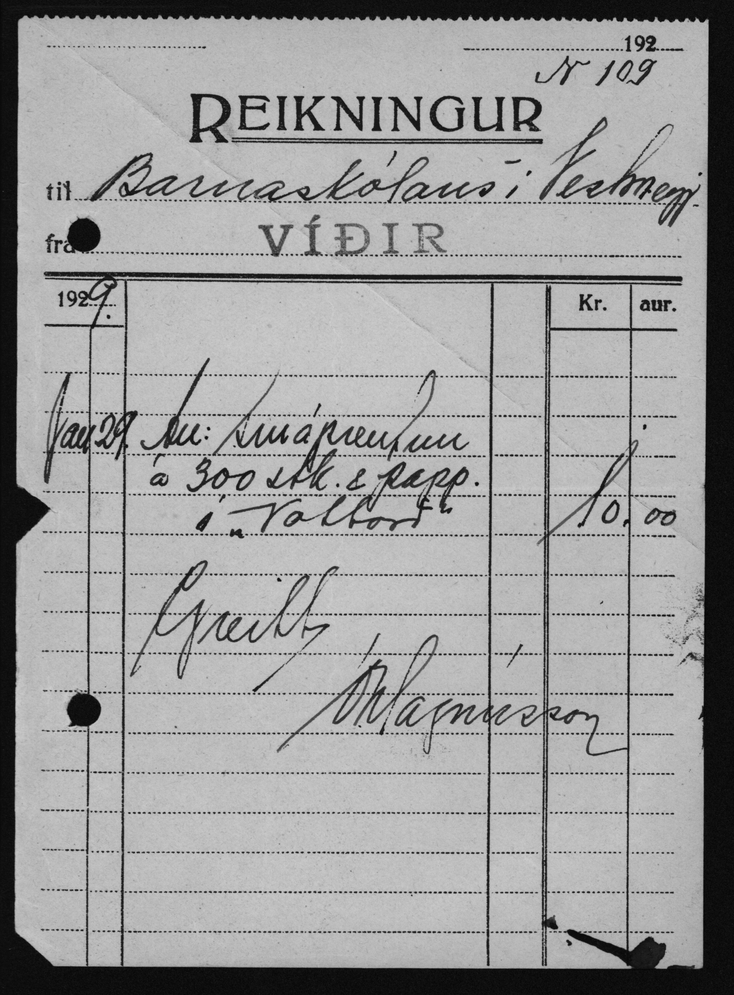 192
N 109
REIKNINGUR
til Barnaskólans í Vestm.eyj.
frá VÍÐIR
1929. Kr. aur.
Jan 29. An: smáprentun
á 300 stk. & papp.
í „Vottorð" 10.00
Greitt
Ó Magnússon